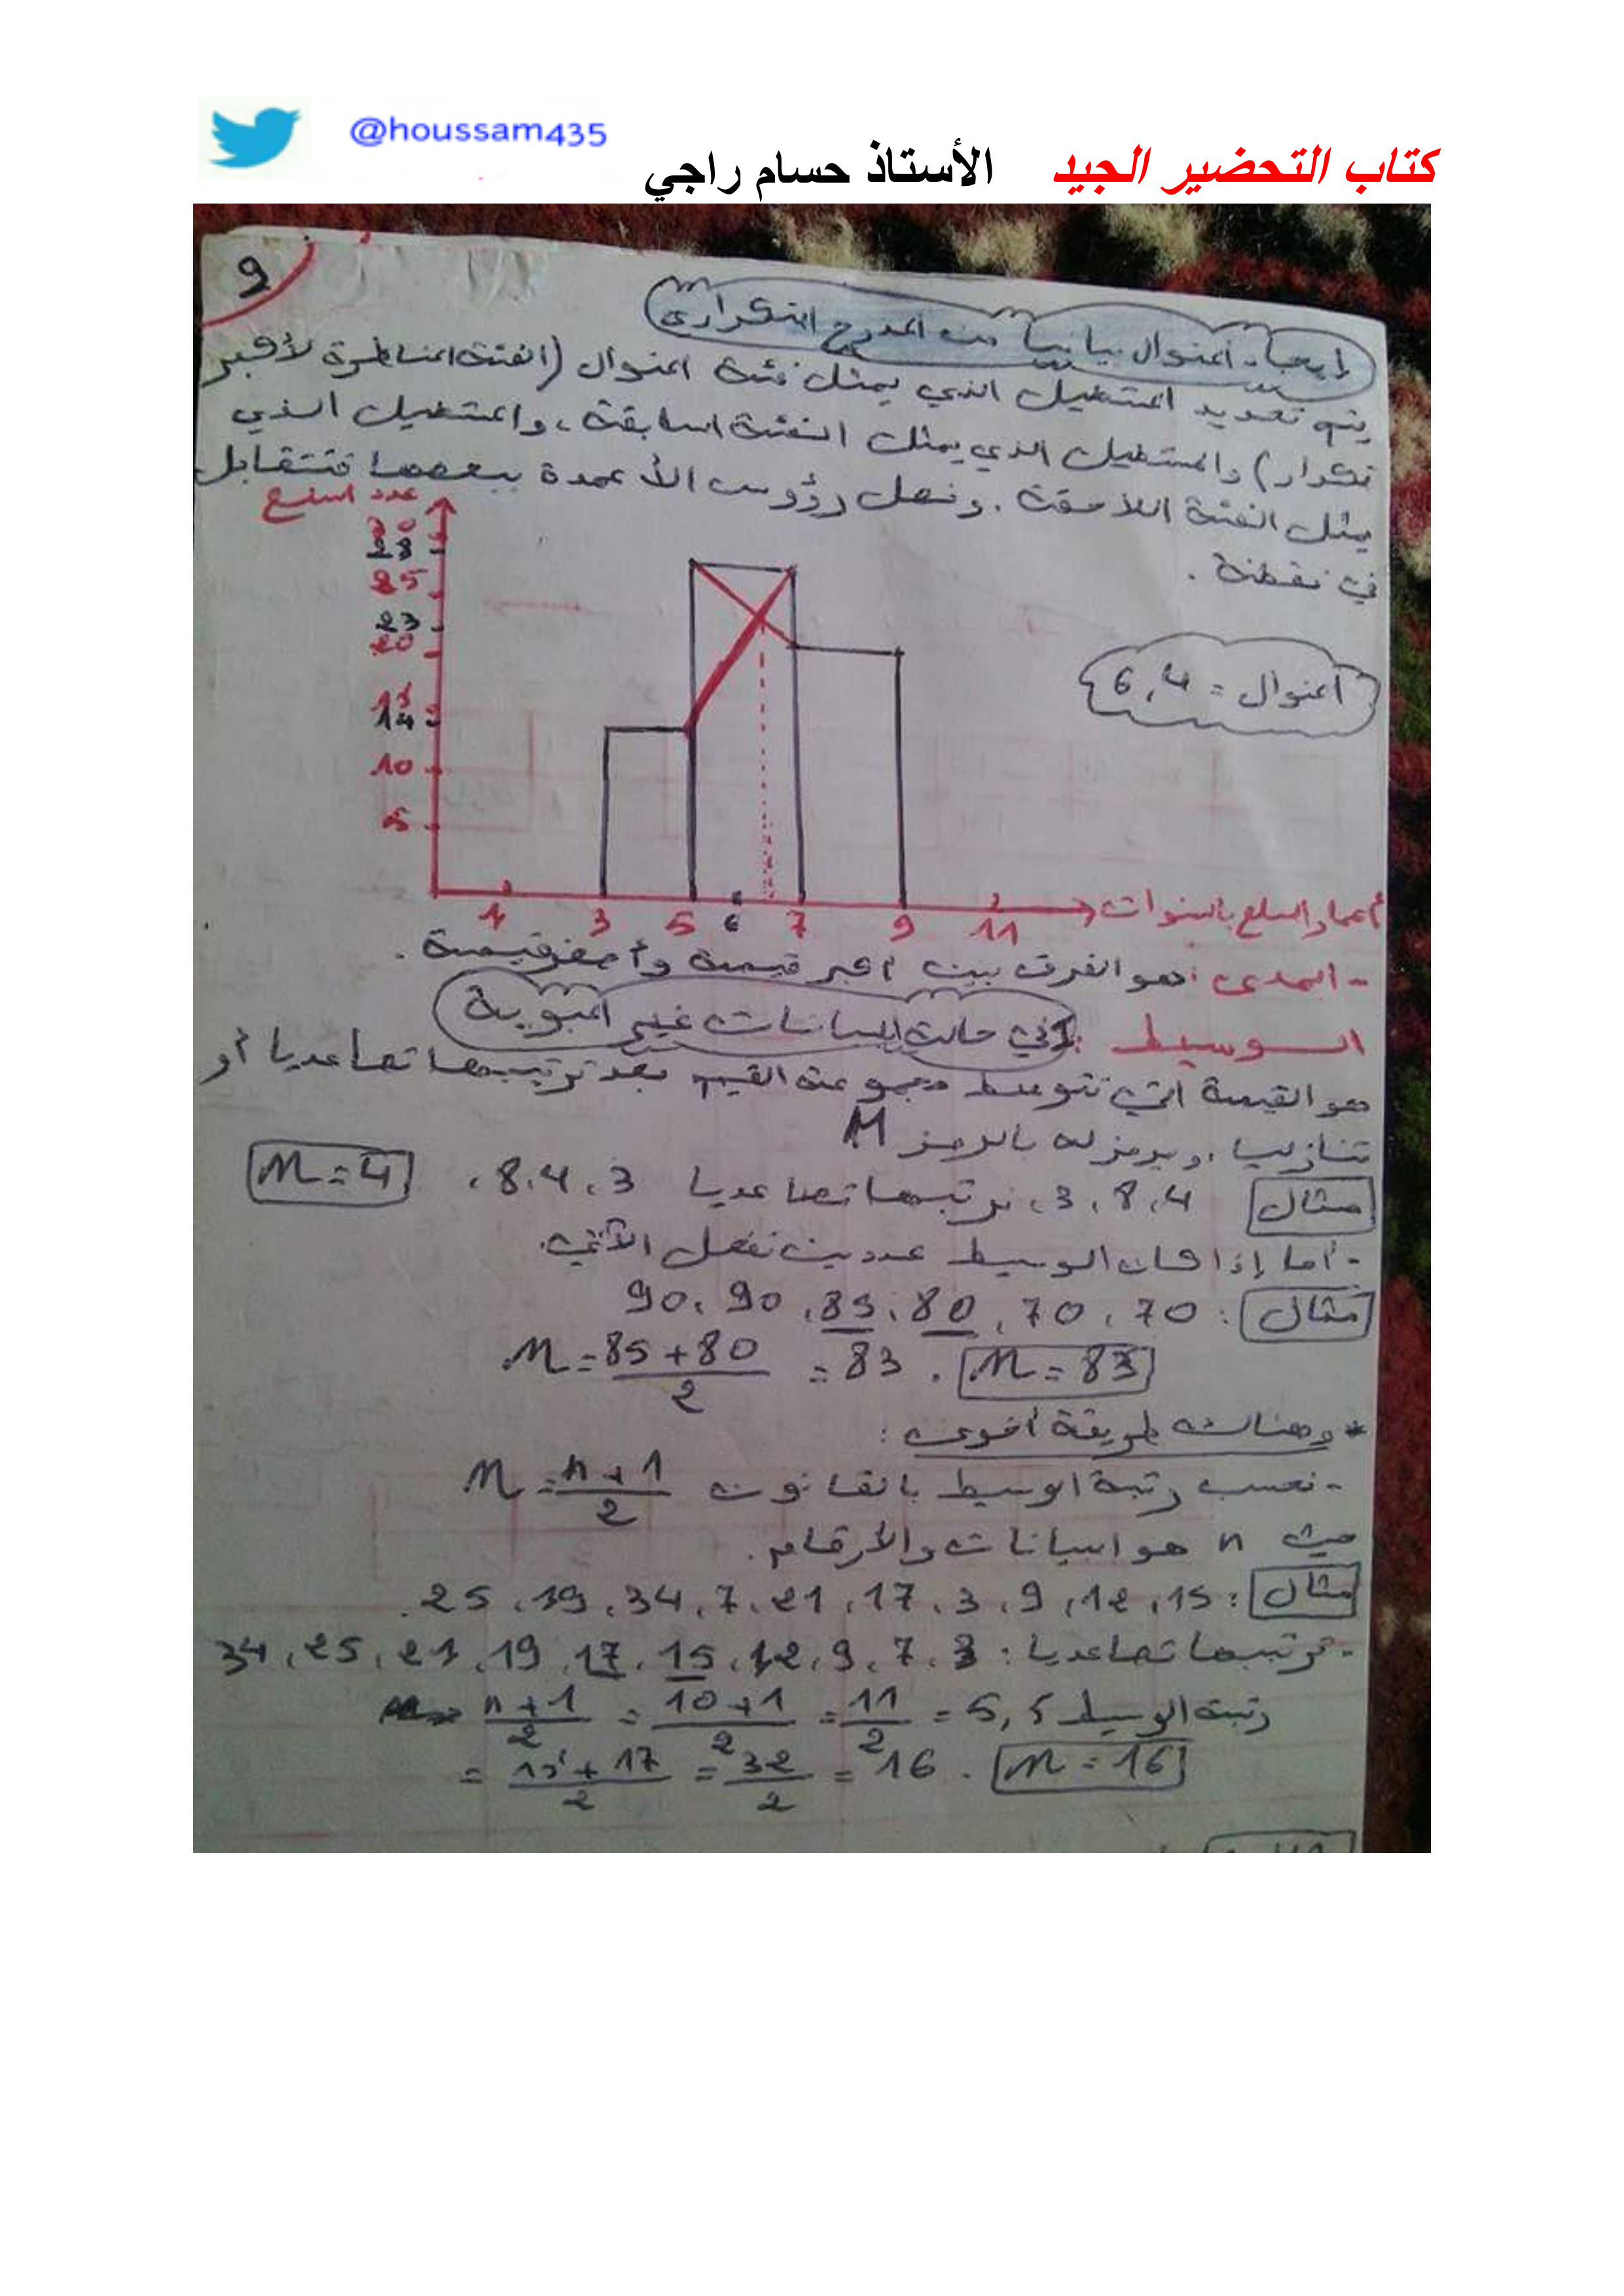 @houssam435
كتاب التحضير الجيد الأستاذ حسام راجي
9
إيجاد المنوال بيانيا من المدرج التكراري
يتم تحديد المستطيل الذي يمثل فئة المنوال (الفئة المناظرة لأكبر
تكرار) والمستطيل الذي يمثل الفئة السابقة، والمستطيل الذي
يمثل الفئة اللاحقة. ونصل رؤوس الأعمدة ببعضها فتتقابل
في نقطة.
عدد السلع
30
28
25
23
20
15
14
10
5
المنوال = 6,4
1 3 5 6 7 9 11
أعمار السلع بالسنوات
- المدى: هو الفرق بين أكبر قيمة وأصغر قيمة.
الوسيط: في حالة البيانات غير المبوبة
هو القيمة التي تتوسط مجموعة القيم بعد ترتيبها تصاعديا أو
تنازليا، ويرمز له بالرمز M
مثال 4، 8، 3، نرتبها تصاعديا 3، 4، 8، M = 4
- أما إذا كان الوسيط عددين نفعل الآتي.
مثال: 70، 70، 80، 85، 90، 90
M = 85+80 / 2 = 83. M = 83
* وهناك طريقة أخرى:
- نحسب رتبة الوسيط بالقانون M = n+1 / 2
حيث n هو البيانات والأرقام.
مثال: 15، 12، 9، 3، 17، 21، 7، 34، 19، 25.
- ترتيبها تصاعديا: 3، 7، 9، 12، 15، 17، 19، 21، 25، 34
رتبة الوسيط n+1 / 2 = 10+1 / 2 = 11 / 2 = 5,5
= 15+17 / 2 = 32 / 2 = 16. M = 16